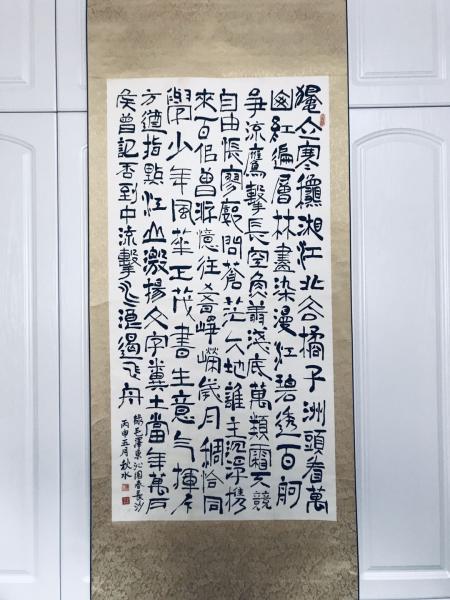 獨立寒龝湘江北去橘子洲頭看萬
山紅遍層林盡染漫江碧透百舸
爭流鷹擊長空魚翔淺底萬類霜天競
自由悵寥廓問蒼茫大地誰主沉浮攜
來百侶曾游憶往昔崢嶸歲月稠恰同
學少年風華正茂書生意气揮斥
方遒指點江山激揚文字糞土當年萬戶
侯曾記否到中流擊水浪遏飛舟
錄毛澤東沁園春長沙
丙申五月秋水